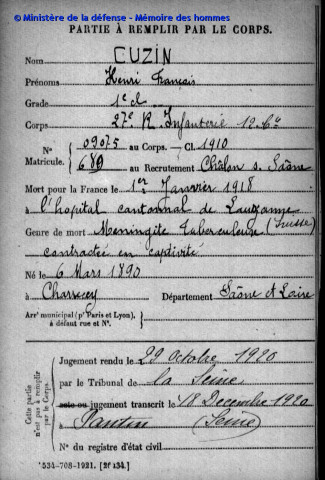 © Ministère de la défense - Mémoire des hommes
PARTIE À REMPLIR PAR LE CORPS.
Nom CUZIN
Prénoms Henri François
Grade 1e cl.
Corps 27e R. Infanterie 12e Cie
N° 09075 au Corps. — Cl. 1910
Matricule. 689 au Recrutement Châlon s. Saône
Mort pour la France le 1er Janvier 1918
à l'hopital cantonnal de Lausanne
(Suisse)
Genre de mort Meningite tuberculeuse
contractée en captivité
Né le 6 Mars 1890
à Charrecey Département Saône et Loire
Arrt municipal (pr Paris et Lyon), à défaut rue et N°.
Cette partie n'est pas à remplir par le Corps.
Jugement rendu le 29 Octobre 1920
par le Tribunal de la Seine
acte ou jugement transcrit le 18 Decembre 1920
à Pantin (Seine)
N° du registre d'état civil
534-708-1921. [26434.]